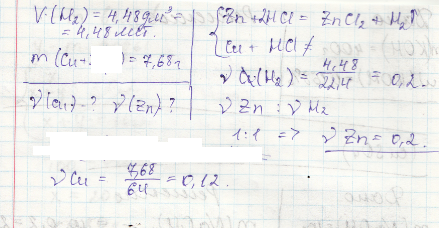 V(H₂) = 4,48 дм³
= 4,48 лит.
m (Cu+ ) = 7,68 г
ν(Cu) - ? ν(Zn) - ?
Zn + 2HCl = ZnCl₂ + H₂↑
Cu + HCl ≠
ν (H₂) = 4,48/22,4 = 0,2.
ν Zn : ν H₂
1:1 => ν Zn = 0,2.
ν Cu = 7,68/64 = 0,12.